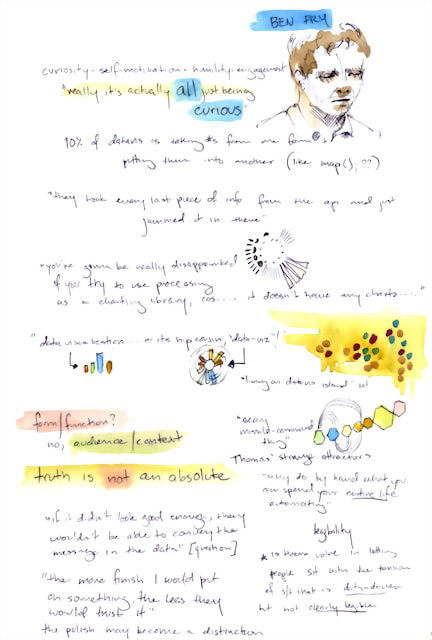 BEN FRY
curiosity · self-motivation · humility · engagement
"really it's actually all just being
curious"
90% of dataviz is taking #s from one form
putting them into another (like map();??)
"they took every last piece of info from the api and just
jammed it in there"
"you're gonna be really disappointed
if you try to use processing
as a charting library, cos.... it doesn't have any charts...."
"data visualization... or its hip cousin, "data-viz"!
"living on dataviz island" lol
form/function?
no, audience/context
truth is not an absolute
"scary
missile-command
thing"
Thomas' strange attractors
"why do by hand what you
can spend your entire life
automating"
"if it didn't look good enough, they
wouldn't be able to convey the
message in the data" [question]
"the more finish I would put
on something, the less they
would trust it"
the polish may become a distraction
legibility
* is there value in letting
people sit with the tension
of s/t that is data-driven
but not clearly legible